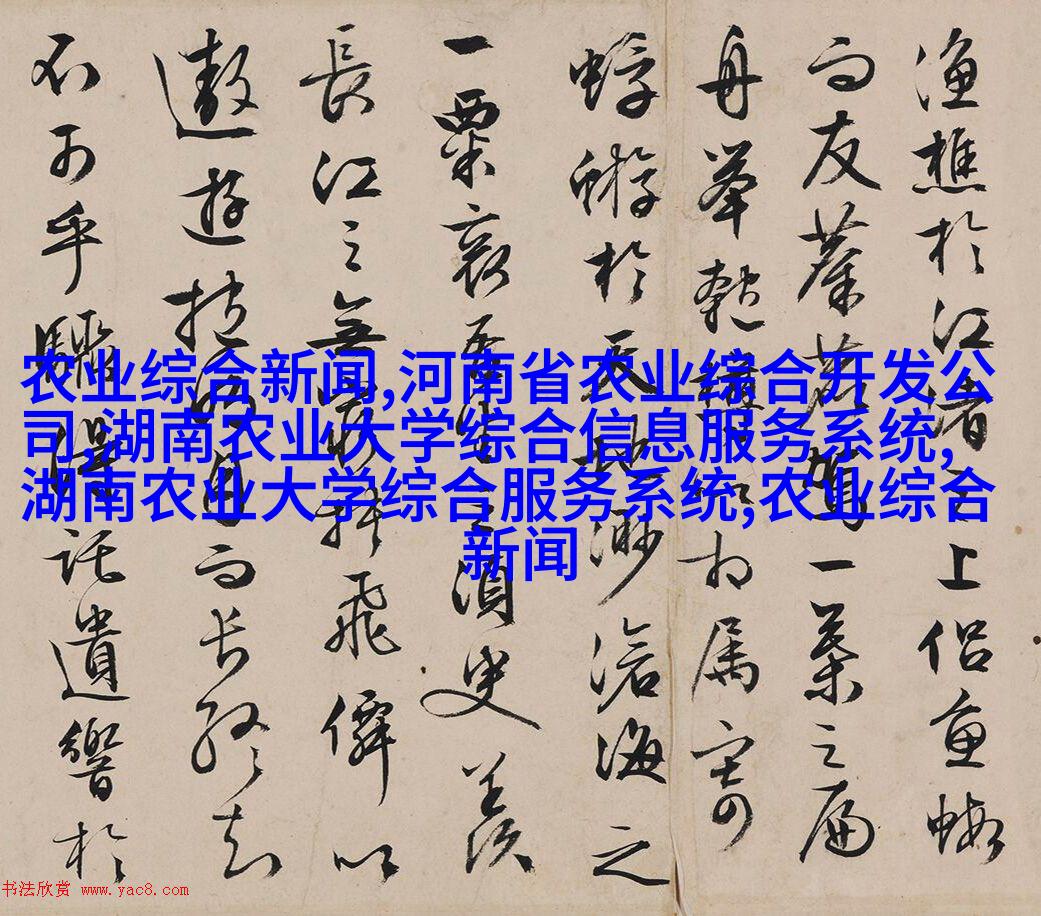 漁樵於江渚之上侶魚蝦
而友麋鹿駕一葉之扁
舟舉匏樽以相属寄
蜉蝣於天地渺滄海之
一粟哀吾生之須臾羨
長江之無窮挾飛僊以
遨遊抱明月而長終知
不可乎驟得託遺響於
农业综合新闻,河南省农业综合开发公
司,湖南农业大学综合信息服务系统,
湖南农业大学综合服务系统,农业综合
新闻
书法欣赏 www.yac8.com